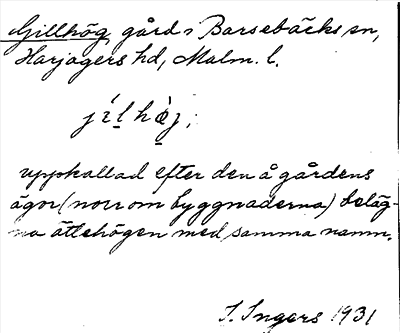 Gillhög, gård i Barsebäcks sn,
Harjagers hd, Malm. l.
jílhœ̀j;
uppkallad efter den å gårdens
ägor (norr om byggnaderna) beläg-
na ättehögen med samma namn.
I. Ingers 1931